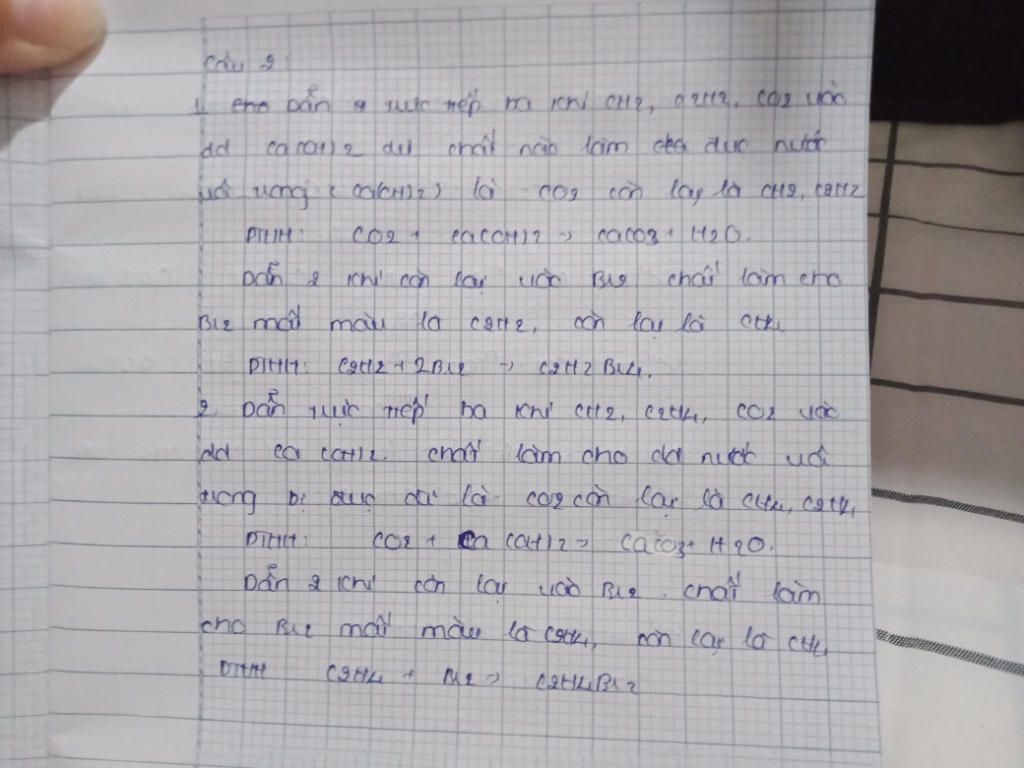 Câu 2
1 cho Dẫn 2 trực tiếp ba khí CH2, C2H2, CO2 vào
dd Ca(OH)2 dư chất nào làm cho đục nước
vôi trong (Ca(OH)2) là CO2 còn lại là CH2, C2H2
PTHH: CO2 + Ca(OH)2 → CaCO3 + H2O.
Dẫn 2 khí còn lại vào Br2 chất làm cho
Br2 mất màu là C2H2, còn lại là CH4
PTHH: C2H2 + 2Br2 → C2H2Br4.
2 Dẫn trực tiếp ba khí CH2, C2H4, CO2 vào
dd Ca(OH)2. chất làm cho dd nước vôi
trong bị đục dư là CO2 còn lại là CH4, C2H4
PTHH: CO2 + Ca(OH)2 → CaCO3 + H2O.
Dẫn 2 khí còn lại vào Br2. chất làm
cho Br2 mất màu là C2H4, còn lại là CH4
PTHH C2H4 + Br2 → C2H4Br2